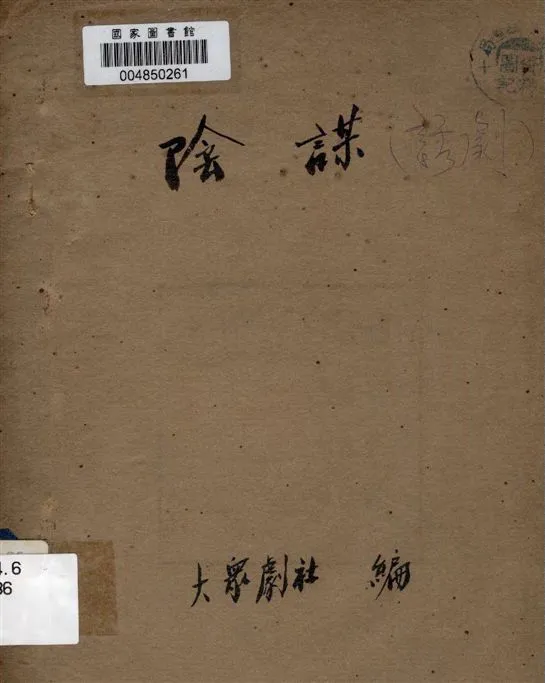 國家圖書館
004850261
陰謀
(話劇)
大眾劇社 編
4.6
36